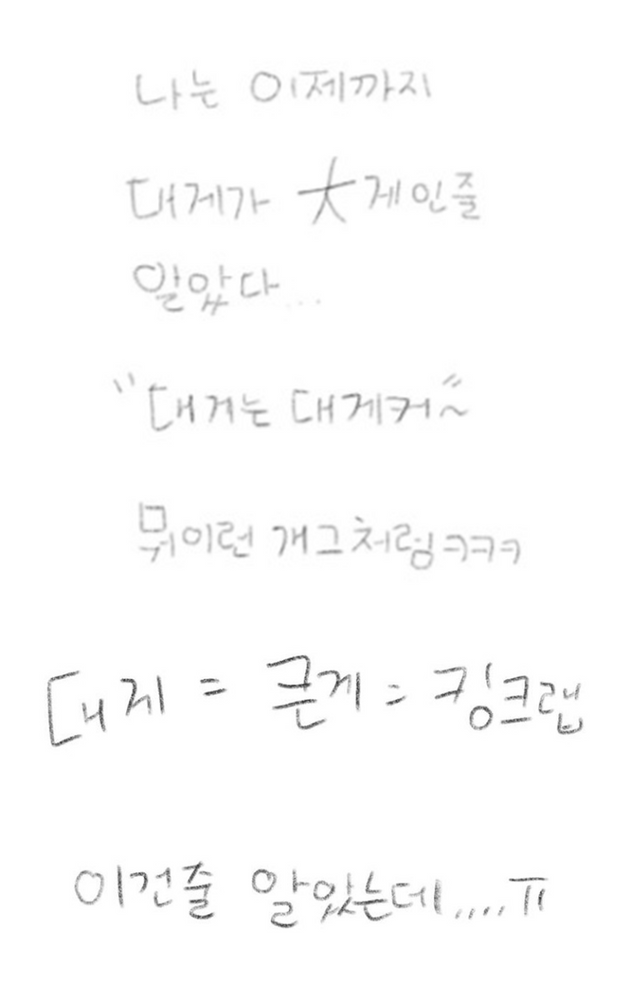 나는 이제까지
대게가 大게인줄
알았다...
"대게는 대게커~"
뭐이런 개그처럼ㅋㅋㅋ
대게 = 큰게 = 킹크랩
이건줄 알았는데....ㅠ